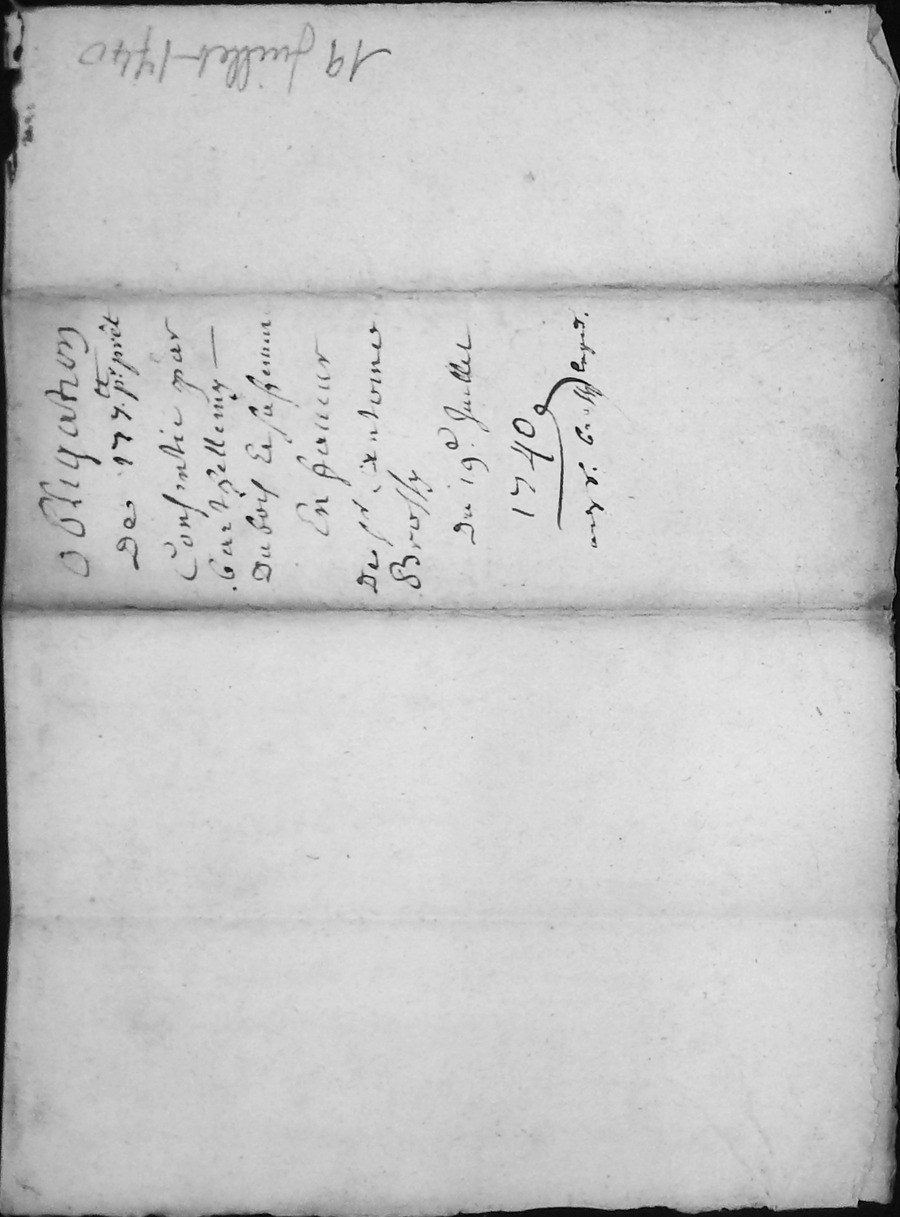 19 Juillet 1740
Obligation
De 177 ₶ pr. prêt
Consentie par
Barthellemy
Dubois
En faveur
De sr. Antoine
Brossy
Du 19e. Juillet
1740